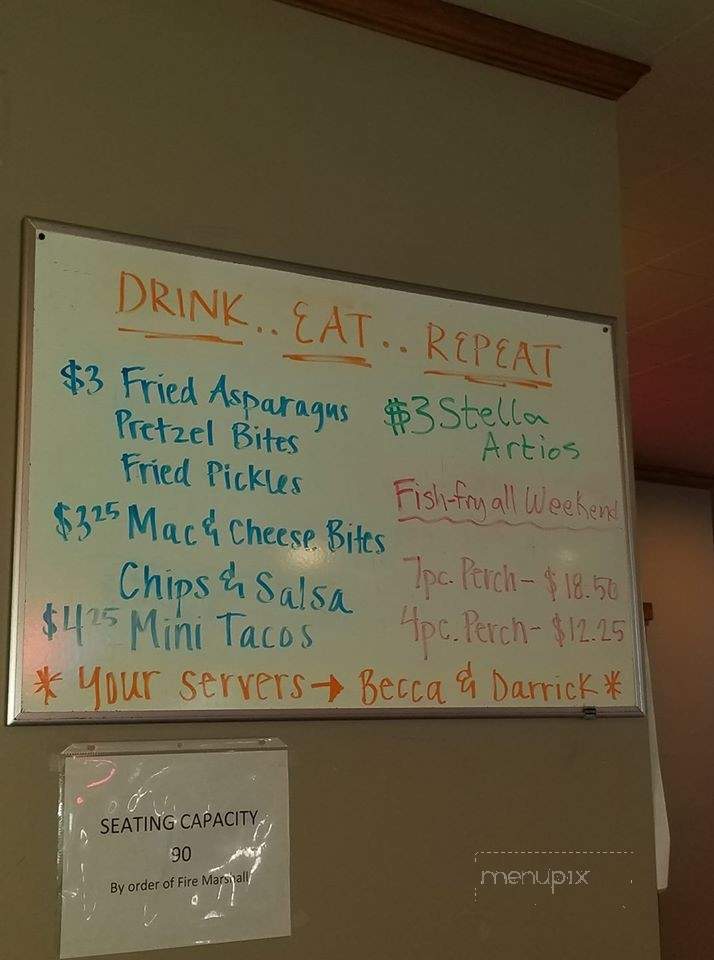 DRINK.. EAT.. REPEAT
$3 Fried Asparagus
Pretzel Bites
Fried Pickles
$3.25 Mac & Cheese Bites
Chips & Salsa
$4.25 Mini Tacos
$3 Stella
Artios
Fish-fry all Weekend
7pc. Perch- $18.50
4pc. Perch- $12.25
* Your servers → Becca & Darrick *
SEATING CAPACITY
90
By order of Fire Marshall
menupix